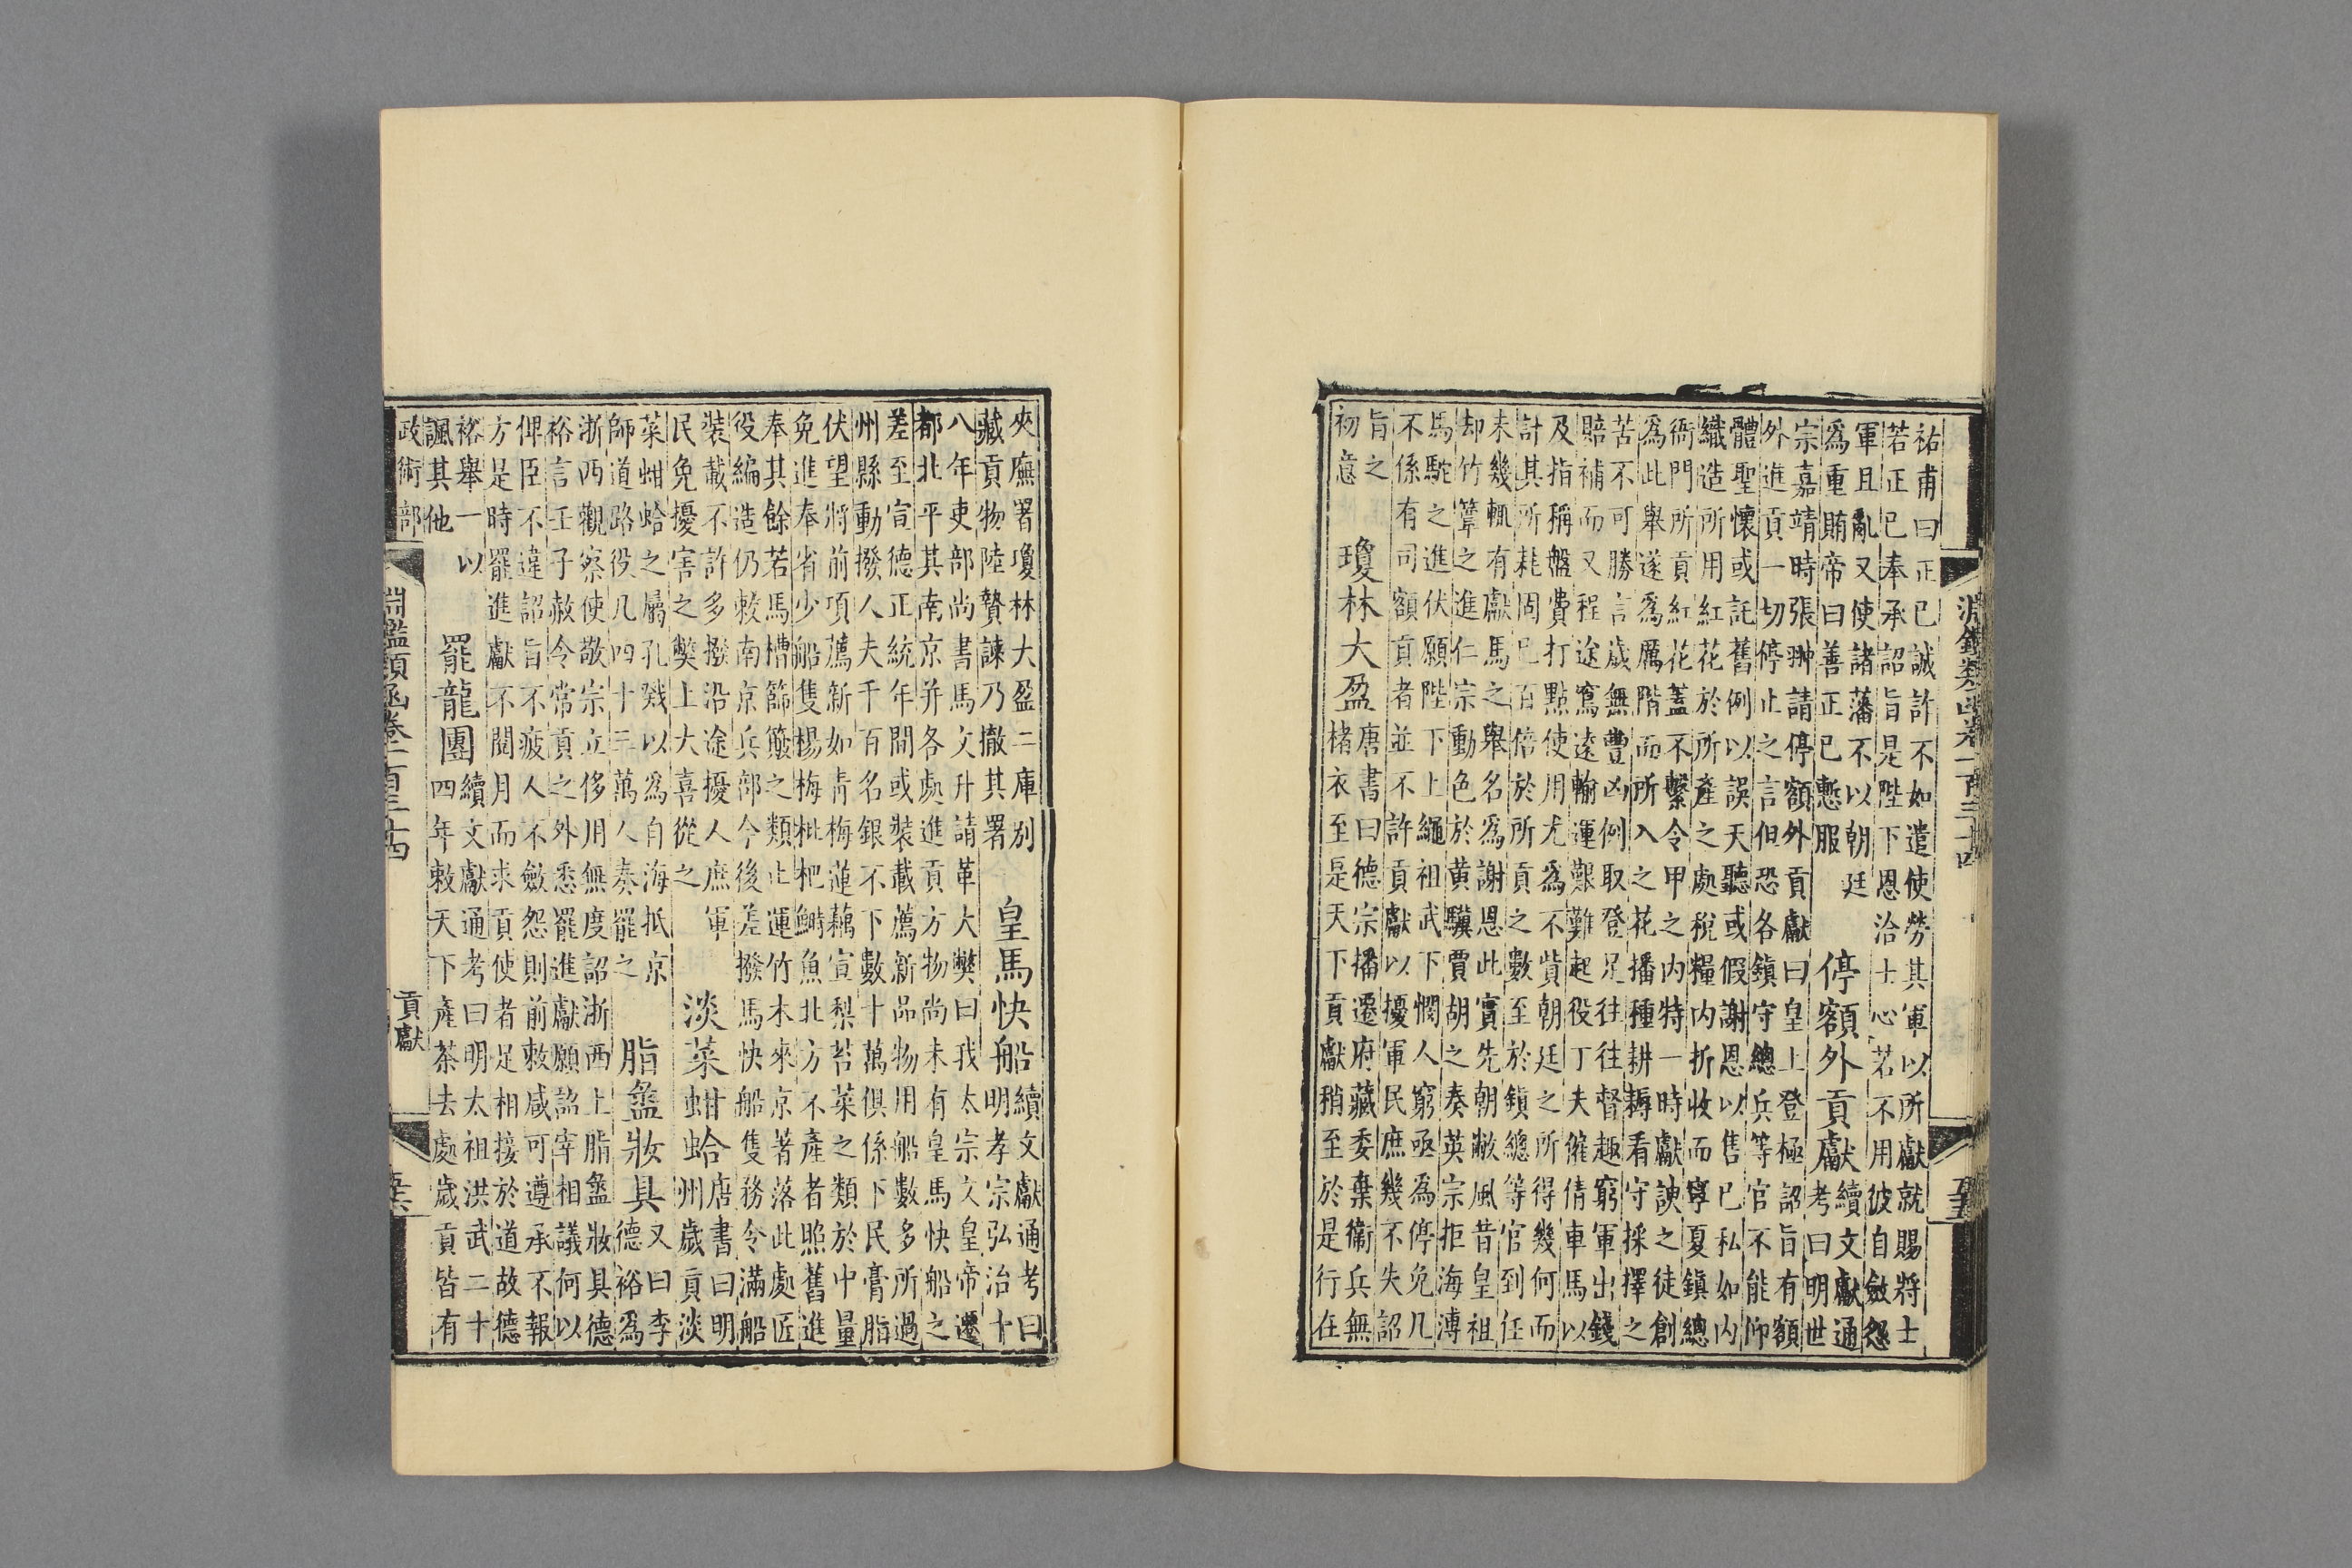 祐甫曰正己誠詐不如遣使勞其軍以所獻就賜將士
若正已奉承詔旨是陛下恩洽士心若不用彼自斂怨
軍且亂又使諸藩不以朝廷
爲重賄帝曰善正已慙服
停額外貢獻
續文獻通
考曰明世
宗嘉靖時張翀請停額外貢獻曰皇上登極詔旨有額
外進貢一切停止之言但恐各鎮守總兵等官不能仰
體聖懷或託舊例以誤天聽或假謝恩以售已私如內
織造所用紅花於所產之處稅糧內折收而寧夏鎮總
衙門所貢紅花蓋不繫令甲之內特一時獻諛之徒創
爲此舉遂爲厲階而所入之花播種耕耨看守採擇之
苦不可勝言歲無豐凶例取登足往往督趣窮軍出錢
賠補而又程途寫遠輸運艱難起役丁夫僱倩車馬以
及指稱盤費打點使用尤爲不貲朝廷之所得幾何而
計其所耗固已百倍於所貢之數至於鎮總等官到任
未幾輒有獻馬之舉名爲謝恩此實先朝敝風昔皇祖
却竹簟之進仁宗動色於黃驥賈胡之奏英宗拒海溥
馬駝之進伏願陛下上繩祖武下憫人窮亟為停免几
不係有司額貢者並不許貢獻以擾軍民庶幾不失詔
旨之
初意
瓊林大盈
唐書曰德宗播遷府藏委棄衞兵無
楮衣至是天下貢獻稍至於是行在
淵鑑類函卷一百三十四
夾廡署瓊林大盈二庫別
藏貢物陸贄諫乃撤其署
皇馬快船
續文獻通考曰
明孝宗弘治十
八年吏部尚書馬文升請革大獘曰我太宗文皇帝遷
都北平其南京并各處進貢方物尚未有皇馬快船之
差至宣德正統年間或裝載薦新品物用船數多所過
州縣動撥人夫千百名銀不下數十萬俱係下民膏脂
伏望將前項薦新如靑梅蓮藕宣梨苔菜之類於中量
免進奉省少船隻楊梅枇杷鰣魚北方不產者照舊進
奉其餘若馬槽篩簸之類止運竹木來京著落此處匠
役編造仍敕南京兵部今後差撥馬快船隻務令滿船
裝載不許多撥沿途擾人庶軍
民免擾害之獘上大喜從之
淡菜蚶蛤
唐書曰明
州歲貢淡
菜蚶蛤之屬孔戣以爲自海抵京
師道路役凡四十三萬人奏罷之
脂盝妝具
又曰李
德裕爲
浙西觀察使敬宗立侈用無度詔浙西上脂盝妝具德
裕言壬子赦令常貢之外悉罷進獻願詔宰相議何以
俾臣不違詔旨不疲人不斂怨則前敕咸可遵承不報
方是時罷進獻不閱月而求貢使者足相接於道故德
裕舉一以
諷其他
罷龍團
續文獻通考曰明太祖洪武二十
四年敕天下產茶去處歲貢皆有
政術部
淵鑑類函卷一百三十四
貢獻